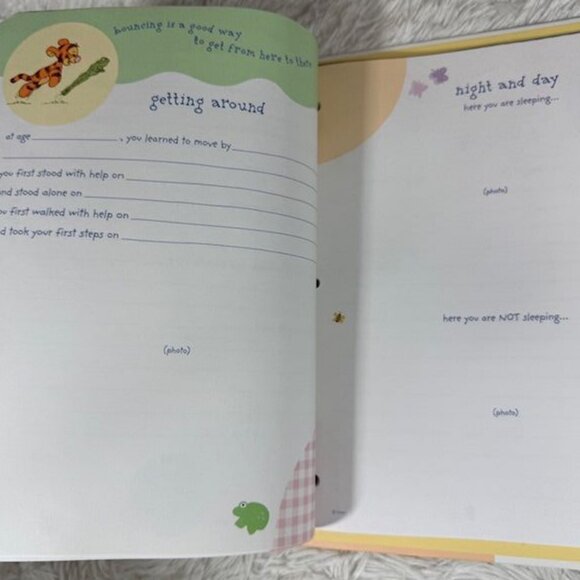 bouncing is a good way
to get from here to there
getting around
at age ____________, you learned to move by ____________
you first stood with help on ____________
and stood alone on ____________
you first walked with help on ____________
and took your first steps on ____________
(photo)
night and day
here you are sleeping...
(photo)
here you are NOT sleeping...
(photo)